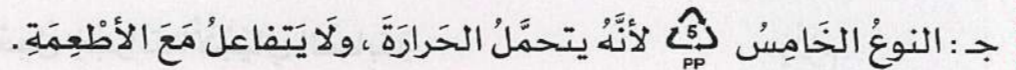 جـ : النوعُ الخَامِسُ 5 PP لأنَّهُ يتحمَّلُ الحَرارَةَ ، ولَا يَتفاعلُ مَعَ الأطْعِمَةِ .